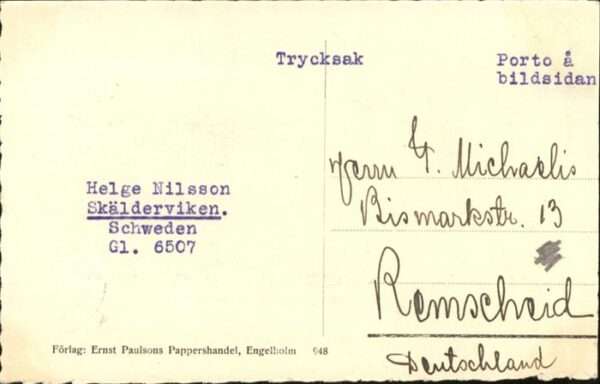 Trycksak
Porto å
bildsidan
Helge Nilsson
Skälderviken.
Schweden
Gl. 6507
Herrn G. Michaelis
Bismarkstr. 13
Remscheid
Deutschland
Förlag: Ernst Paulsons Pappershandel, Engelholm 948